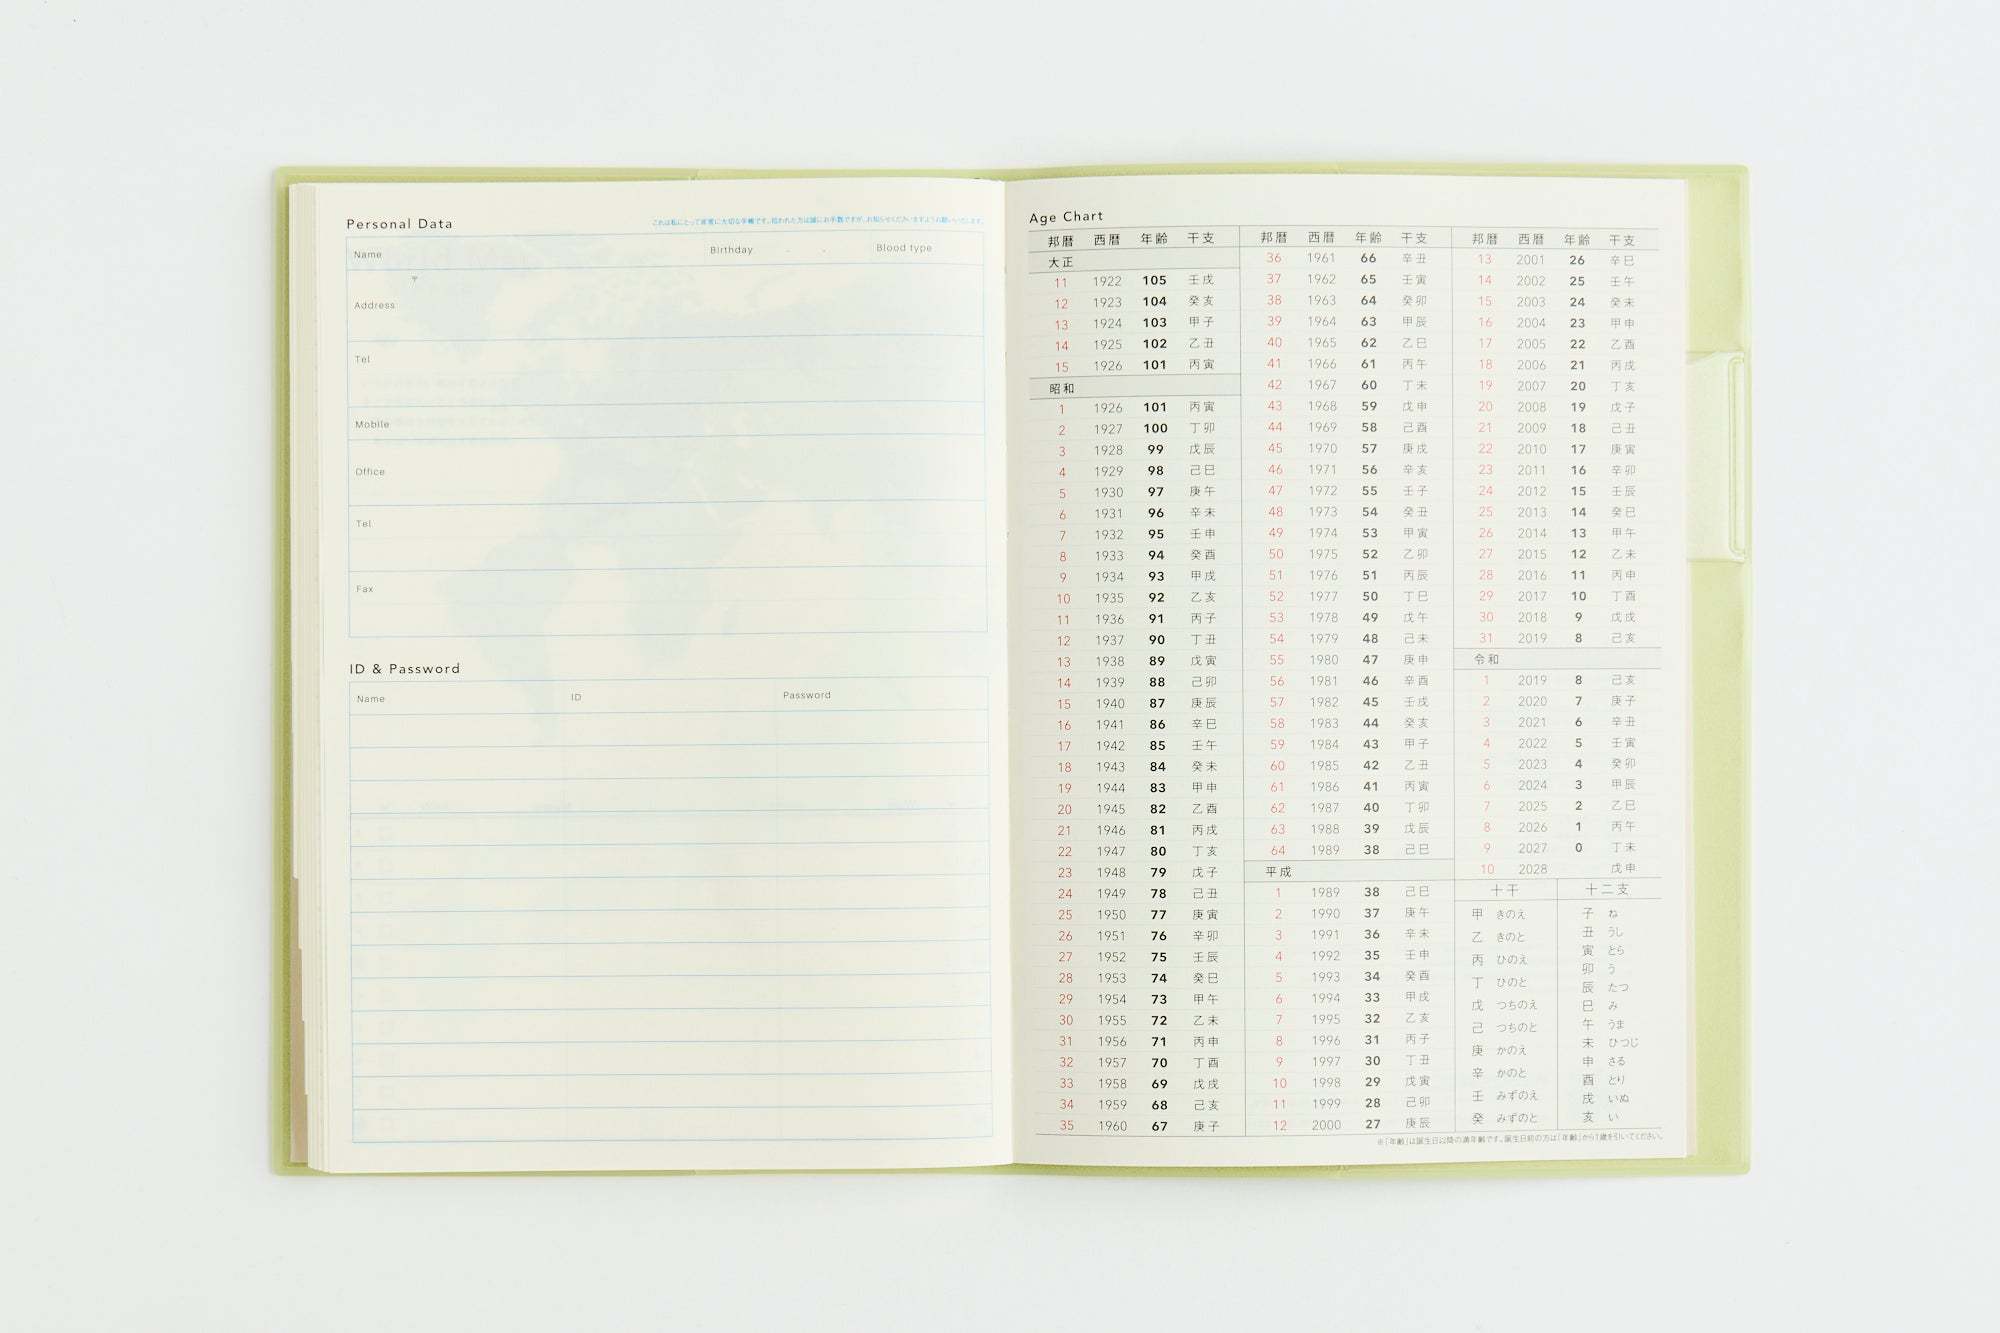 Personal Data
これは私にとって非常に大切な手帳です。拾われた方は誠にお手数ですが、お知らせくださいますようお願いいたします。
Name Birthday . . Blood type
〒
Address
Tel
Mobile
Office
Tel
Fax
ID & Password
Name ID Password
Age Chart
邦暦 西暦 年齢 干支
大正
11 1922 105 壬戌
12 1923 104 癸亥
13 1924 103 甲子
14 1925 102 乙丑
15 1926 101 丙寅
昭和
1 1926 101 丙寅
2 1927 100 丁卯
3 1928 99 戊辰
4 1929 98 己巳
5 1930 97 庚午
6 1931 96 辛未
7 1932 95 壬申
8 1933 94 癸酉
9 1934 93 甲戌
10 1935 92 乙亥
11 1936 91 丙子
12 1937 90 丁丑
13 1938 89 戊寅
14 1939 88 己卯
15 1940 87 庚辰
16 1941 86 辛巳
17 1942 85 壬午
18 1943 84 癸未
19 1944 83 甲申
20 1945 82 乙酉
21 1946 81 丙戌
22 1947 80 丁亥
23 1948 79 戊子
24 1949 78 己丑
25 1950 77 庚寅
26 1951 76 辛卯
27 1952 75 壬辰
28 1953 74 癸巳
29 1954 73 甲午
30 1955 72 乙未
31 1956 71 丙申
32 1957 70 丁酉
33 1958 69 戊戌
34 1959 68 己亥
35 1960 67 庚子
邦暦 西暦 年齢 干支
36 1961 66 辛丑
37 1962 65 壬寅
38 1963 64 癸卯
39 1964 63 甲辰
40 1965 62 乙巳
41 1966 61 丙午
42 1967 60 丁未
43 1968 59 戊申
44 1969 58 己酉
45 1970 57 庚戌
46 1971 56 辛亥
47 1972 55 壬子
48 1973 54 癸丑
49 1974 53 甲寅
50 1975 52 乙卯
51 1976 51 丙辰
52 1977 50 丁巳
53 1978 49 戊午
54 1979 48 己未
55 1980 47 庚申
56 1981 46 辛酉
57 1982 45 壬戌
58 1983 44 癸亥
59 1984 43 甲子
60 1985 42 乙丑
61 1986 41 丙寅
62 1987 40 丁卯
63 1988 39 戊辰
64 1989 38 己巳
平成
1 1989 38 己巳
2 1990 37 庚午
3 1991 36 辛未
4 1992 35 壬申
5 1993 34 癸酉
6 1994 33 甲戌
7 1995 32 乙亥
8 1996 31 丙子
9 1997 30 丁丑
10 1998 29 戊寅
11 1999 28 己卯
12 2000 27 庚辰
邦暦 西暦 年齢 干支
13 2001 26 辛巳
14 2002 25 壬午
15 2003 24 癸未
16 2004 23 甲申
17 2005 22 乙酉
18 2006 21 丙戌
19 2007 20 丁亥
20 2008 19 戊子
21 2009 18 己丑
22 2010 17 庚寅
23 2011 16 辛卯
24 2012 15 壬辰
25 2013 14 癸巳
26 2014 13 甲午
27 2015 12 乙未
28 2016 11 丙申
29 2017 10 丁酉
30 2018 9 戊戌
31 2019 8 己亥
令和
1 2019 8 己亥
2 2020 7 庚子
3 2021 6 辛丑
4 2022 5 壬寅
5 2023 4 癸卯
6 2024 3 甲辰
7 2025 2 乙巳
8 2026 1 丙午
9 2027 0 丁未
10 2028 戊申
十干
甲 きのえ
乙 きのと
丙 ひのえ
丁 ひのと
戊 つちのえ
己 つちのと
庚 かのえ
辛 かのと
壬 みずのえ
癸 みずのと
十二支
子 ね
丑 うし
寅 とら
卯 う
辰 たつ
巳 み
午 うま
未 ひつじ
申 さる
酉 とり
戌 いぬ
亥 い
※「年齢」は誕生日以降の満年齢です。誕生日前の方は「年齢」から1歳を引いてください。